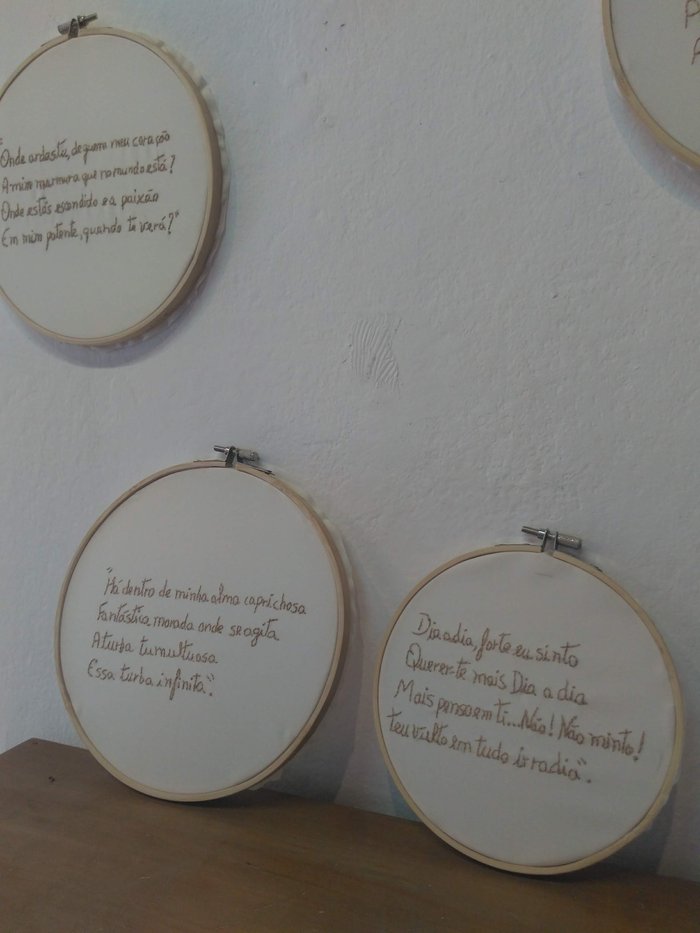 "Onde ardastu, de quem meu coração
A mim murmura que no mundo está?
Onde estás escondido e a paixão
Em mim potente, quando te verá?"
P
A
"Há dentro de minha alma caprichosa
Fantástica morada onde se agita
A turba tumultuosa
Essa turba infinita".
Dia a dia, forte eu sinto
Querer-te mais Dia a dia
Mais penso em ti...Não! Não minto!
teu vulto em tudo irradia".